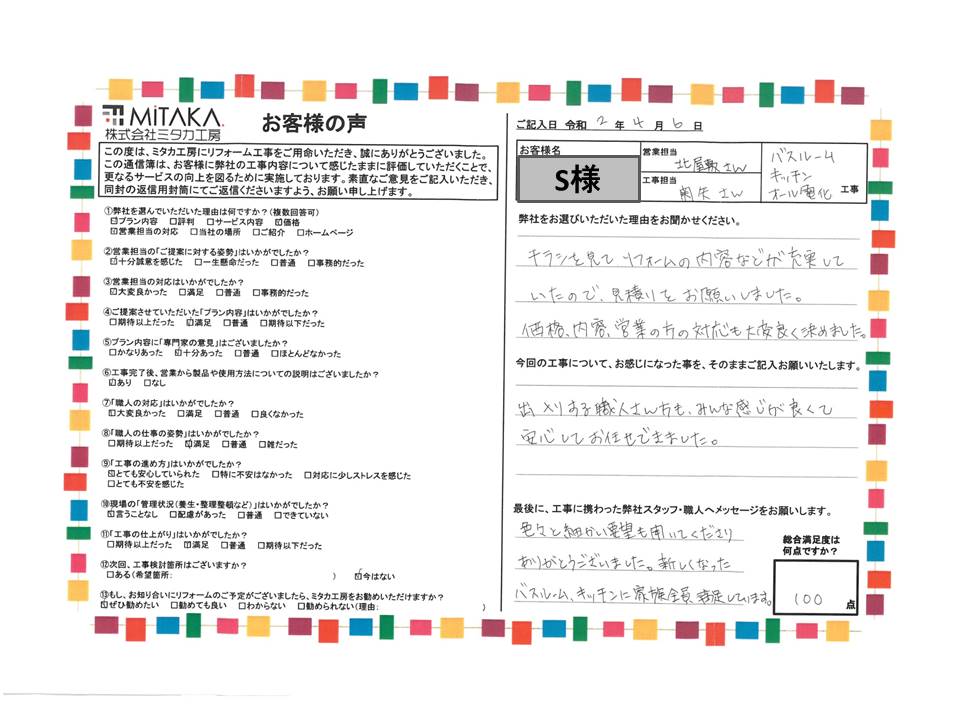 MiTAKA.
株式会社ミタカ工房
お客様の声
この度は、ミタカ工房にリフォーム工事をご用命いただき、誠にありがとうございました。
この通信簿は、お客様に弊社の工事内容について感じたままに評価していただくことで、
更なるサービスの向上を図るために実施しております。素直なご意見をご記入いただき、
同封の返信用封筒にてご返信くださいますよう、お願い申し上げます。
①弊社を選んでいただいた理由は何ですか?(複数回答可)
☑プラン内容 □評判 □サービス内容 ☑価格
☑営業担当の対応 □当社の場所 □ご紹介 □ホームページ
②営業担当の「ご提案に対する姿勢」はいかがでしたか?
☑十分誠意を感じた □一生懸命だった □普通 □事務的だった
③営業担当の対応はいかがでしたか?
☑大変良かった □満足 □普通 □事務的だった
④ご提案させていただいた「プラン内容」はいかがでしたか?
□期待以上だった ☑満足 □普通 □期待以下だった
⑤プラン内容に「専門家の意見」はございましたか?
□かなりあった ☑十分あった □普通 □ほとんどなかった
⑥工事完了後、営業から製品や使用方法についての説明はございましたか?
☑あり □なし
⑦「職人の対応」はいかがでしたか?
☑大変良かった □満足 □普通 □良くなかった
⑧「職人の仕事の姿勢」はいかがでしたか?
□期待以上だった ☑満足 □普通 □雑だった
⑨「工事の進め方」はいかがでしたか?
☑とても安心していられた □特に不安はなかった □対応に少しストレスを感じた
□とても不安を感じた
⑩現場の「管理状況(養生・整理整頓など)」はいかがでしたか?
☑言うことなし □配慮があった □普通 □できていない
⑪「工事の仕上がり」はいかがでしたか?
□期待以上だった ☑満足 □普通 □期待以下だった
⑫次回、工事検討箇所はございますか?
□ある(希望箇所: ) ☑今はない
⑬もし、お知り合いにリフォームのご予定がございましたら、ミタカ工房をお勧めいただけますか?
☑ぜひ勧めたい □勧めても良い □わからない □勧められない(理由: )
ご記入日 令和 2 年 4 月 6 日
お客様名
S様
営業担当
北屋敷さん
工事担当
さん
バスルーム
キッチン
オール電化 工事
弊社をお選びいただいた理由をお聞かせください。
チラシを見てリフォームの内容などが充実して
いたので、見積りをお願いしました。
価格、内容、営業の方の対応も大変良く決めました。
今回の工事について、お感じになった事を、そのままご記入お願いいたします。
出入りする職人さん方も、みんな感じが良くて
安心してお任せできました。
最後に、工事に携わった弊社スタッフ・職人へメッセージをお願いします。
色々と細かい要望も聞いてくださり
ありがとうございました。新しくなった
バスルーム、キッチンに家族全員満足しています。
総合満足度は
何点ですか?
100 点